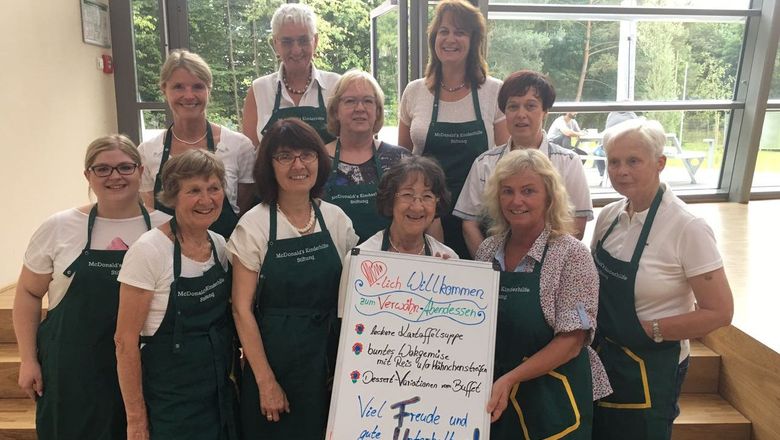 McDonald's Kinderhilfe
Stiftung
McDonald's Kinder
Stiftung
McDonald's
Stiftung
McDonald's Kinder
Stiftung
McDonald's Kinderhilfe
Stiftung
McDonald's Kinderhilfe
Stiftung
-lich Willkommen
zum Verwöhn-Abendessen
leckere Kartoffelsuppe
buntes Wokgemüse
mit Reis u/o Hähnchenstreifen
Dessert-Variationen vom Buffet
Viel Freude und
gute